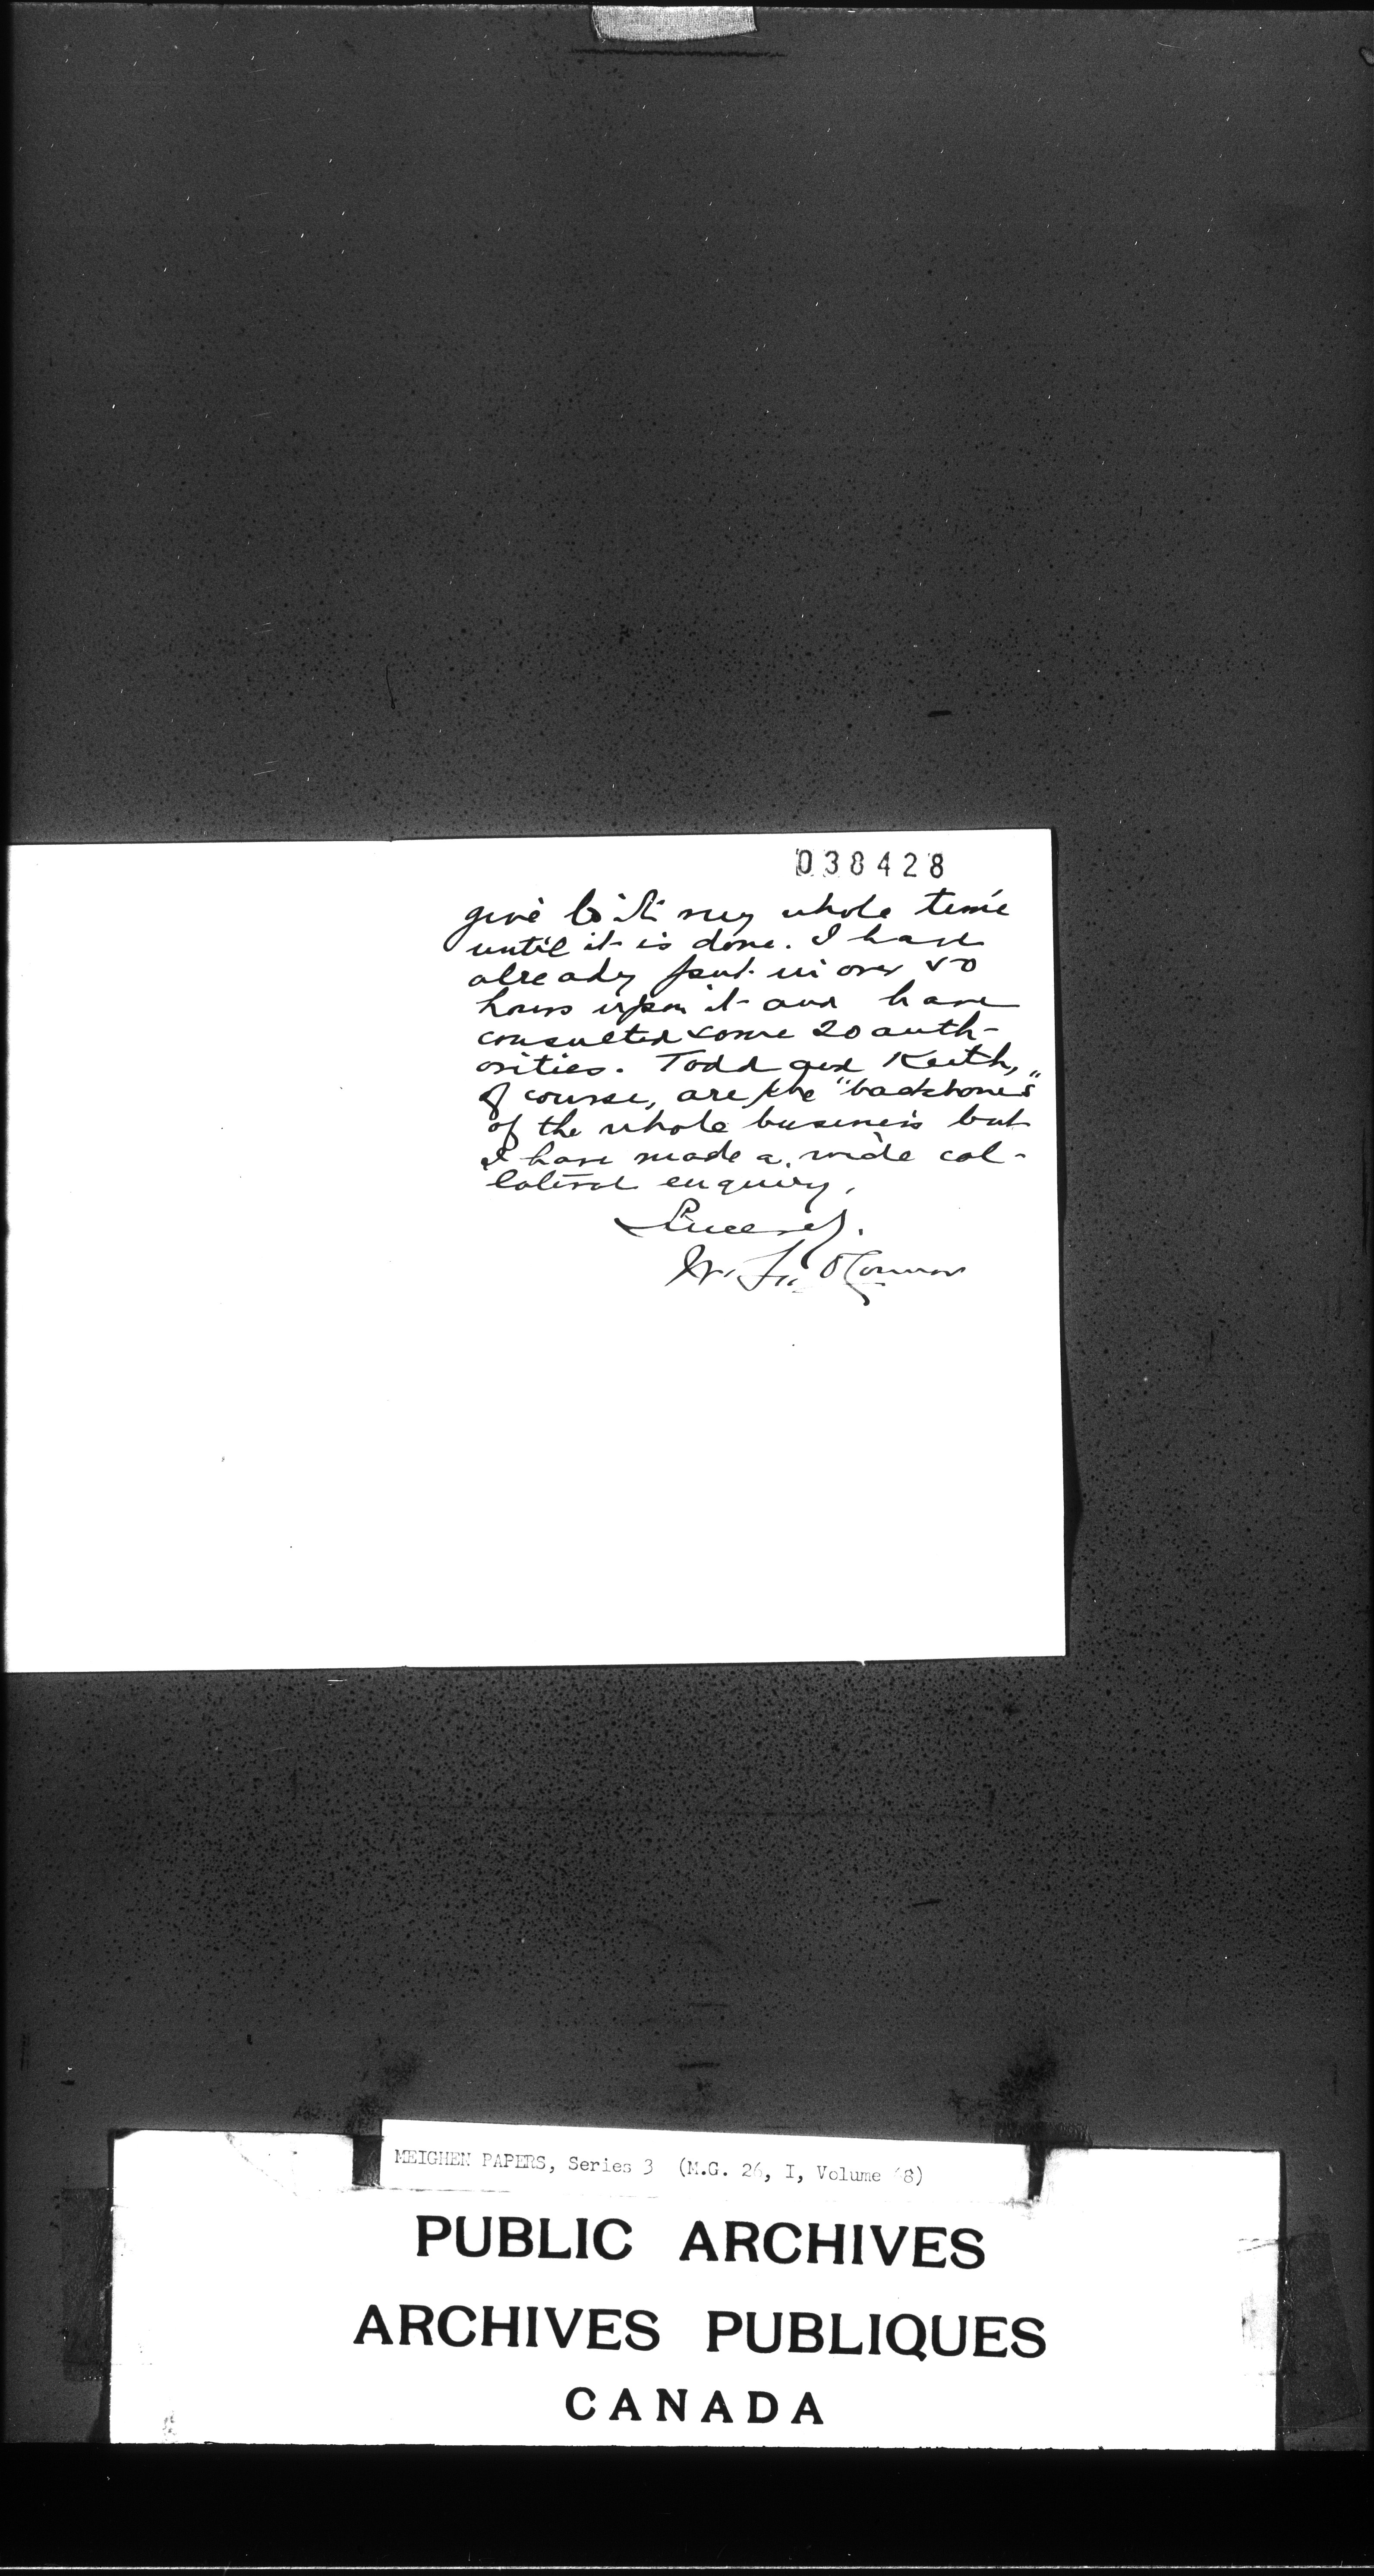 038428
give to it my whole time
until it is done. I have
already put in over 50
hours upon it and have
consulted some 20 auth-
orities. Todd and Keith,
of course, are the "backbones"
of the whole business but
I have made a wide col-
lateral enquiry.
Sincerely.
W. F. O'Connor
MEIGHEN PAPERS, Series 3 (M.G. 26, I, Volume 8)
PUBLIC ARCHIVES
ARCHIVES PUBLIQUES
CANADA